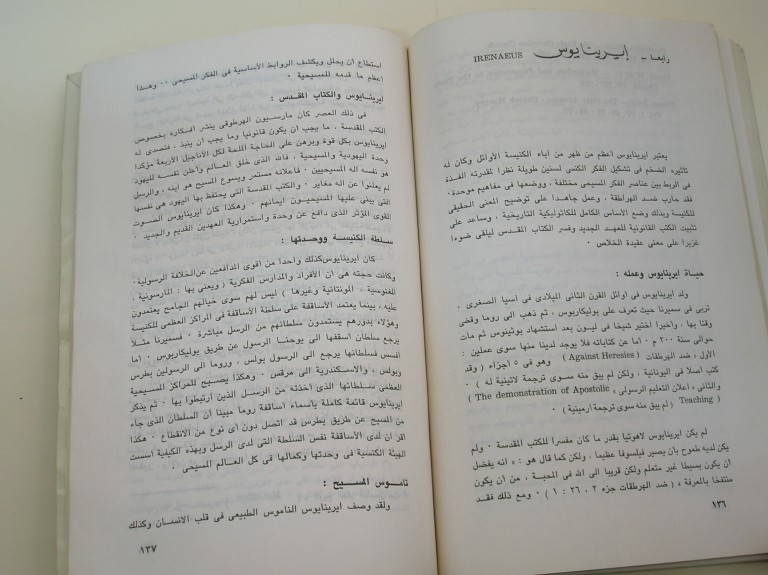 رابعا - إيرينايوس IRENAEUS
يعتبر ايرينايوس اعظم من ظهر من آباء الكنيسة الأوائل وكان له
تأثيره الضخم فى تشكيل الفكر الكنسى لسنين طويلة نظرا لمقدرته الفذة
فى الربط بين عناصر الفكر المسيحى المختلفة ، ووضعها فى مفاهيم موحدة .
فقد حارب ضد الهراطقة ، وعمل جاهدا على توضيح المعنى الحقيقى
للكنيسة وبذلك وضع الأساس الكامل للكاثوليكية التاريخية ، وساعد على
تثبيت الكتب القانونية للعهد الجديد وفسر الكتاب المقدس ليلقى ضوءا
غزيرا على معنى عقيدة الخلاص .
حياة ايرينايوس وعمله :
ولد ايرينايوس فى أوائل القرن الثانى الميلادى فى آسيا الصغرى .
تربى فى سميرنا حيث تعرف على بوليكاربوس ، ثم ذهب الى روما وقضى
وقتا بها ، وأخيرا اختير شيخا فى ليون بعد استشهاد بوثينوس ثم مات
حوالى سنة ٢٠٠ م . اما عن كتاباته فلا يوجد لدينا منها سوى عملين :
الأول : ضد الهرطقات ( Against Heresies ) وهو فى ٥ أجزاء ( وقد
كتب أصلا فى اليونانية ، ولكن لم يبق منه سوى ترجمة لاتينية له ) .
والثانى : اعلان التعليم الرسولى ( The demonstration of Apostolic
Teaching ) ( لم يبق منه سوى ترجمة أرمينية ) .
لم يكن ايرينايوس لاهوتيا بقدر ما كان مفسرا للكتب المقدسة . ولم
يكن لديه طموح بأن يصير فيلسوفا عظيما ، ولكن كما قال هو : « انه يفضل
أن يكون بسيطا غير متعلم ولكن قريبا الى الله فى المحبة ، من أن يكون
منتفخا بالمعرفة » ( ضد الهرطقات جزء ٢ ، ٢٦ : ١ ) . ومع ذلك فقد
١٣٦
استطاع أن يحلل ويكشف الروابط الأساسية فى الفكر المسيحى . . وهذا
أعظم ما قدمه للمسيحية .
ايرينايوس والكتاب المقدس :
فى ذلك العصر كان مارسيون الهرطوقى ينشر أفكاره بخصوص
الكتب المقدسة ، ما يجب أن يكون قانونيا وما يجب أن ينبذ ، فتصدى له
ايرينايوس بكل قوة وبرهن على الحاجة الملحة لكل الأناجيل الأربعة مؤكدا
وحدة اليهودية والمسيحية ، فالله الذى خلق العالم وأعلن نفسه لليهود
هو نفسه اله المسيحيين . فاعلانه مستمر ويسوع المسيح هو ابنه ، والرسل
لم يعلنوا عن اله مغاير . والكتب المقدسة التى يحتفظ بها اليهود هى نفسها
التى يبنى عليها المسيحيون ايمانهم . وهكذا كان ايرينايوس الصوت
القوى المؤثر الذى دافع عن وحدة واستمرارية العهدين القديم والجديد .
سلطة الكنيسة ووحدتها :
كان ايرينايوس كذلك واحدا من أقوى المدافعين عن الخلافة الرسولية .
وكانت حجته هى أن الأفراد والمدارس الفكرية ( ويعنى بها : المارسونية ،
الغنوسية ، المونتانية وغيرها ) ليس لهم سوى خيالهم الجامح يعتمدون
عليه ، بينما يعتمد الأساقفة على سلطة الأساقفة فى المراكز العظمى للكنيسة
وهؤلاء بدورهم يستمدون سلطانهم من الرسل مباشرة . فسميرنا مثلا
يرجع سلطان أسقفها الى يوحنا الرسول عن طريق بوليكاربوس . اما
أفسس فسلطانها يرجع الى الرسول بولس ، وروما الى الرسولين بطرس
وبولس ، والاسكندرية الى مرقس . وهكذا يصبح للمراكز المسيحية
العظمى سلطانها الذى أخذته من الرسل الذين ارتبطوا بها . ثم يذكر
ايرينايوس قائمة كاملة بأسماء أساقفة روما مبينا أن السلطان الذى جاء
من المسيح عن طريق بطرس قد اتصل دون أى نوع من الانقطاع . هكذا
أقر أن لدى الأساقفة نفس السلطة التى لدى الرسل وبهذه الكيفية أسست
الهيئة الكنسية فى وحدتها وكمالها فى كل العالم المسيحى .
ناموس المسيح :
ولقد وصف ايرينايوس الناموس الطبيعى فى قلب الانسان وكذلك
١٣٧